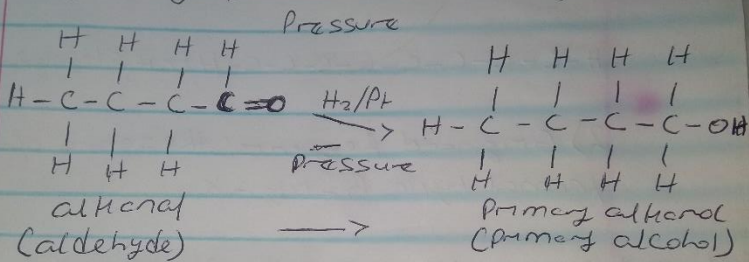 Pressure
H H H H
H - C - C - C - C = O
H H H
H2/Pt
Pressure
H H H H
H - C - C - C - C - OH
H H H H
alkanal
(aldehyde)
Primary alkanol
(primary alcohol)